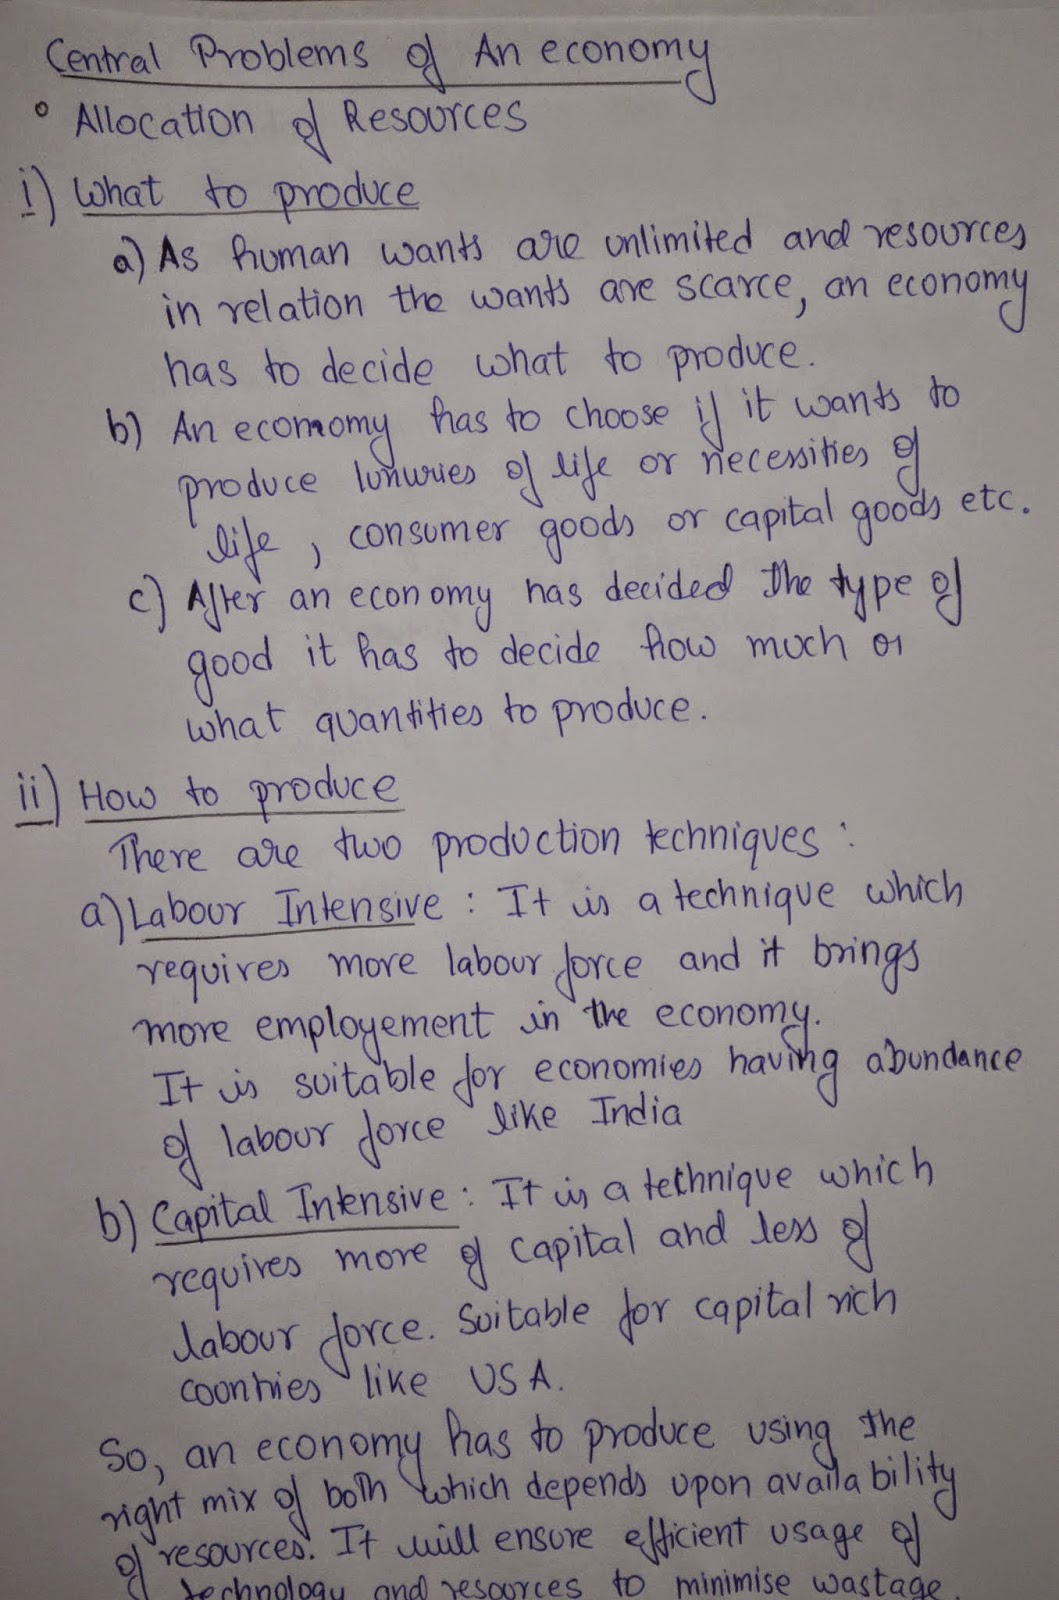 Central Problems of An economy
° Allocation of Resources
i) What to produce
a) As human wants are unlimited and resources
in relation the wants are scarce, an economy
has to decide what to produce.
b) An economomy has to choose if it wants to
produce luxuries of life or necessities of
life, consumer goods or capital goods etc.
c) After an economy has decided the type of
good it has to decide how much or
what quantities to produce.
ii) How to produce
There are two production techniques :
a) Labour Intensive : It is a technique which
requires more labour force and it brings
more employement in the economy.
It is suitable for economies having abundance
of labour force like India
b) Capital Intensive : It is a technique which
requires more of capital and less of
labour force. Suitable for capital rich
countries like USA.
So, an economy has to produce using the
right mix of both which depends upon availability
of resources. It will ensure efficient usage of
technology and resources to minimise wastage.